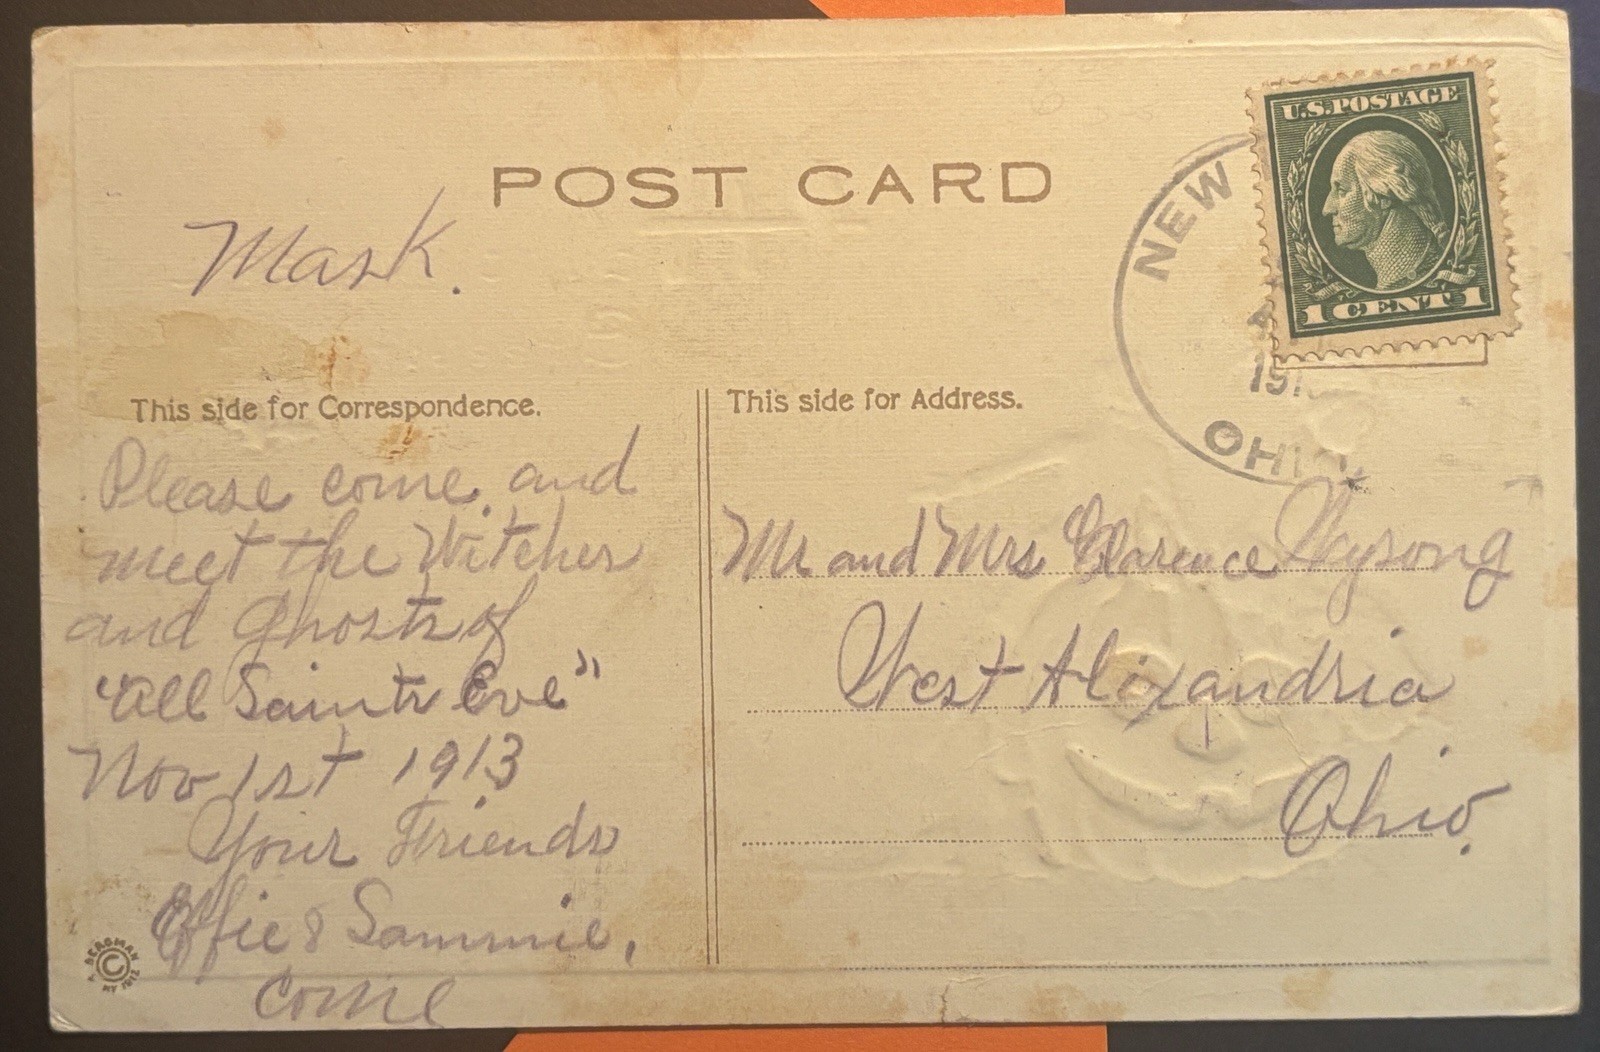 POST CARD
U.S. POSTAGE
1 CENT 1
NEW
191
OHIO.
Mask.
This side for Correspondence.
This side for Address.
Please come and
meet the Witches
and Ghosts of
"All Saints Eve"
Nov 1st 1913
Your Friends
Effie & Sammie,
come
Mr and Mrs Clarence Wysong
West Alixandria
Ohio.
BERGMAN
©
NY 1912